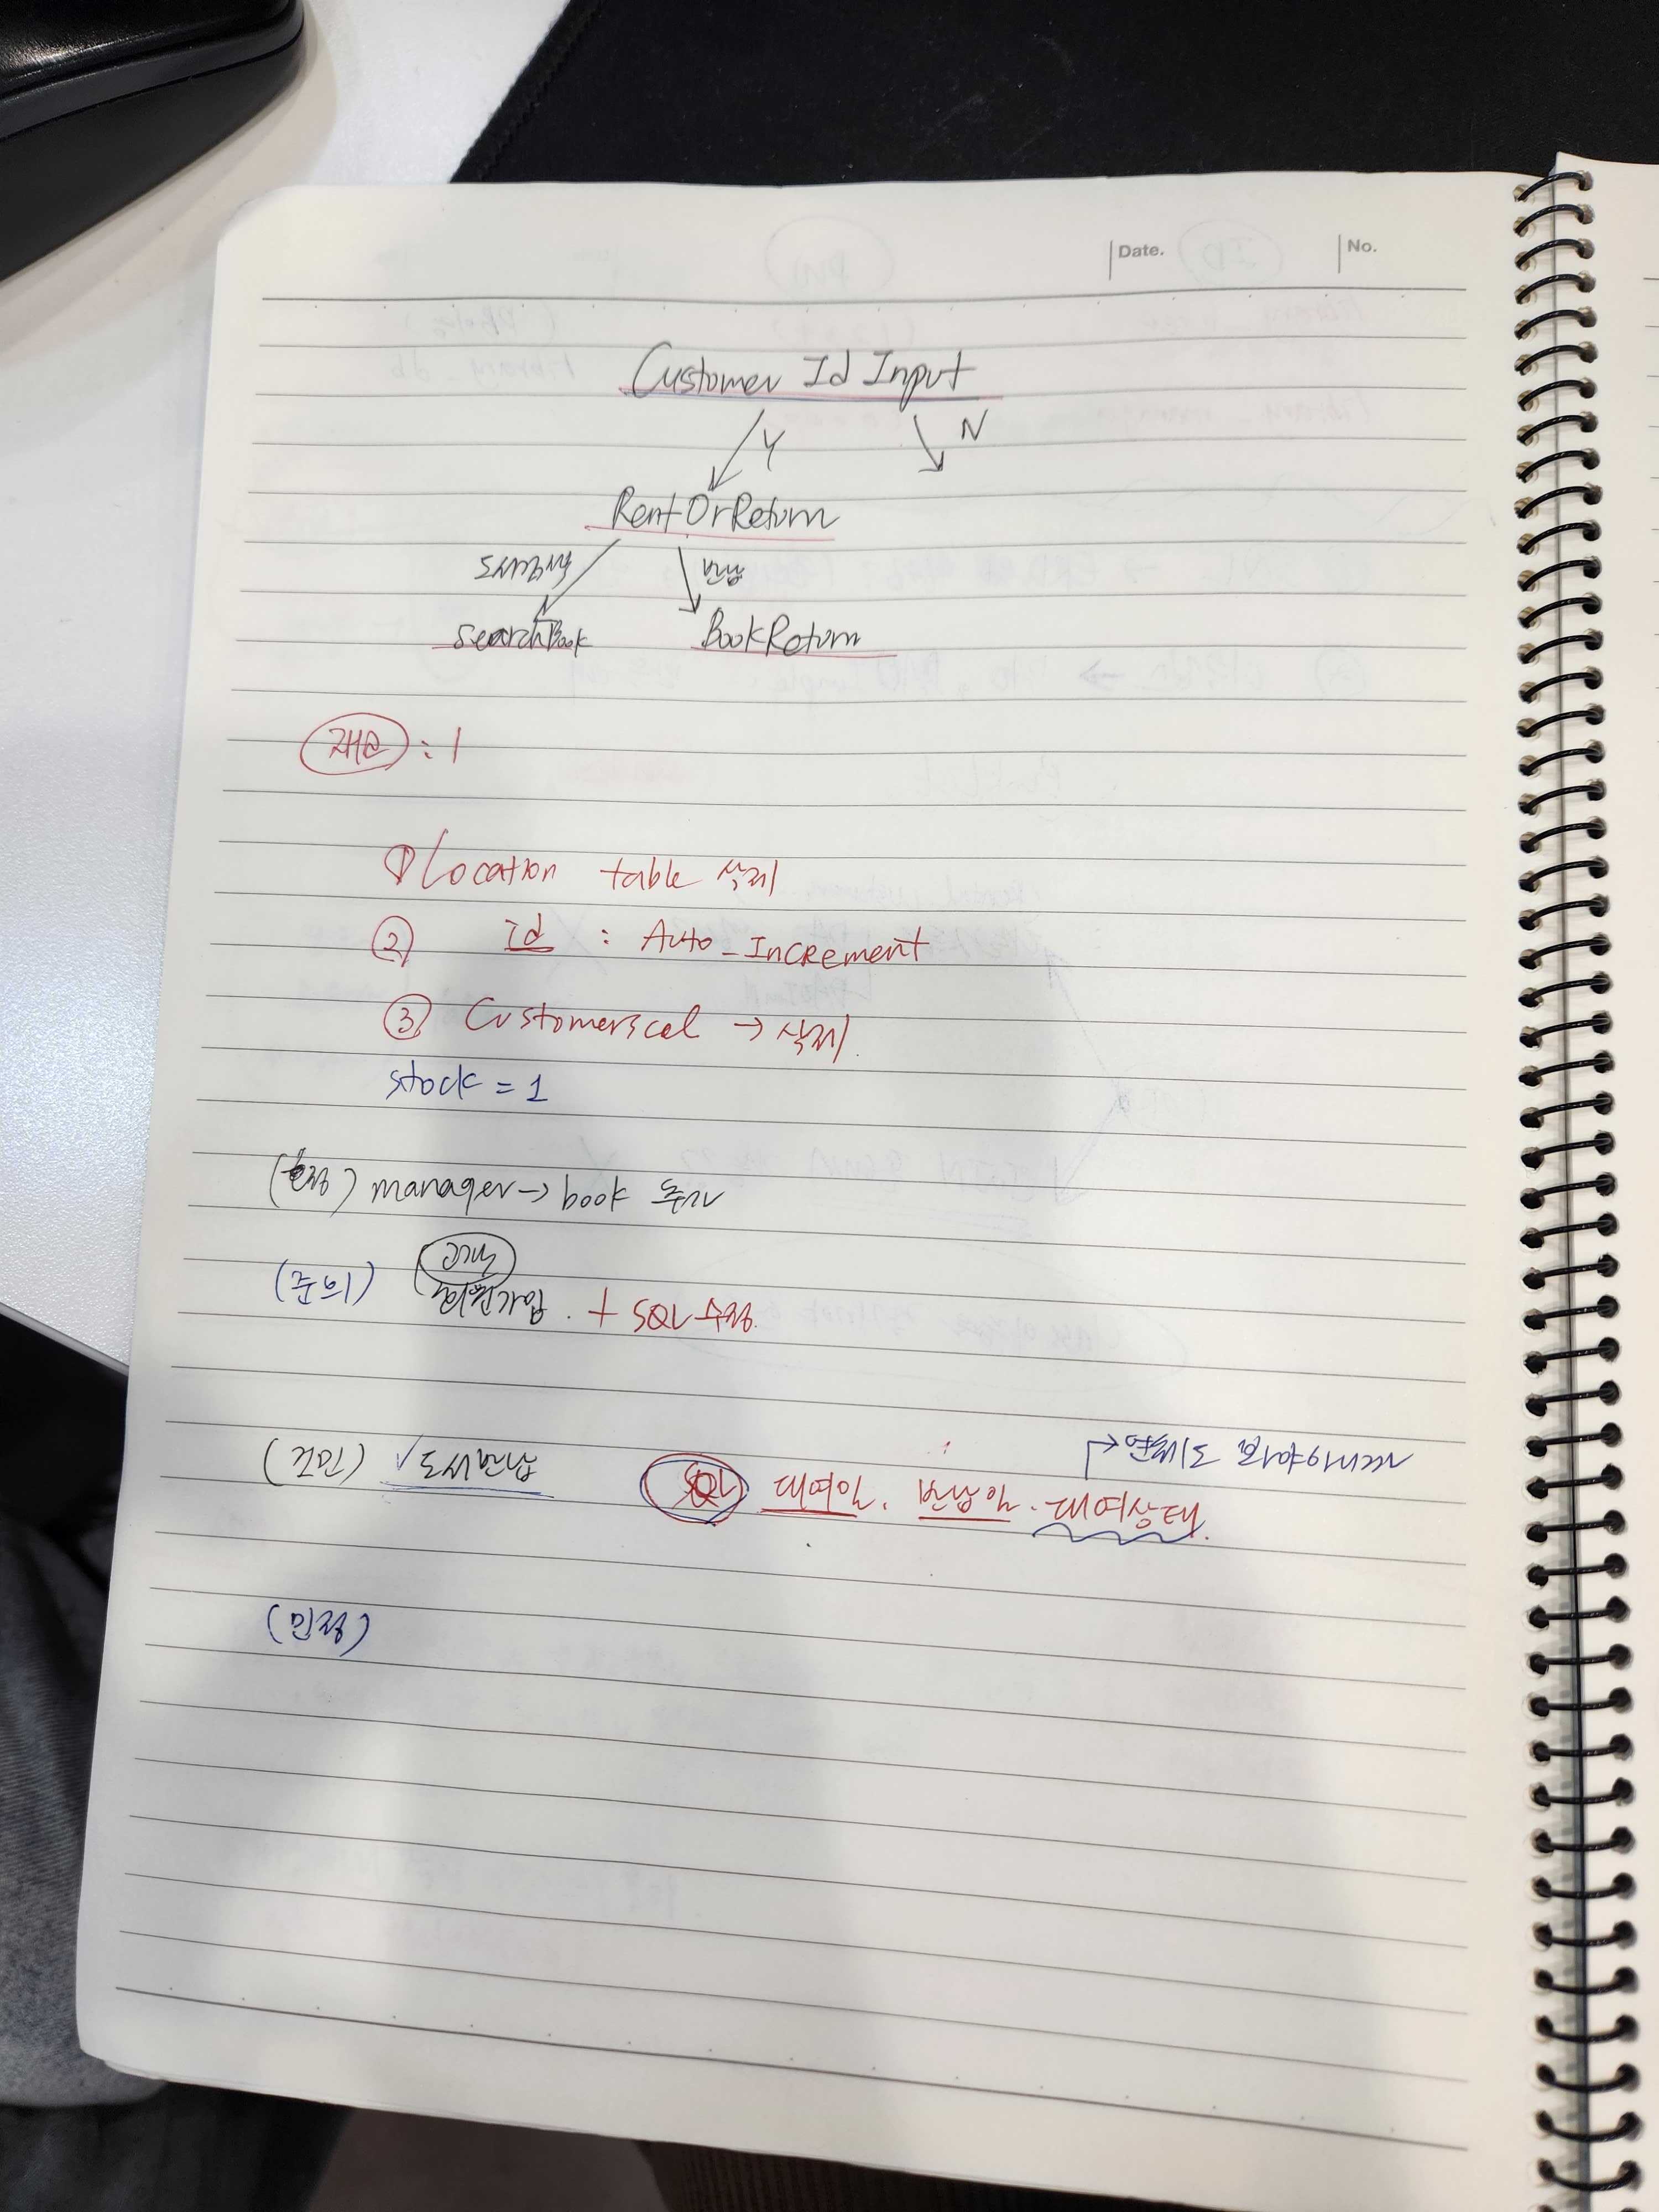 Date.
No.
Customer Id Input
Y
N
RentOrReturn
도서검색
반납
SearchBook
BookReturn
재고 : 1
① Location table 삭제
② id : Auto_Increment
③ Customerscel → 삭제
stock = 1
manager → book 추가
(준의)
+ SQL 수정
→ 연체도 보여야
SQL 대여일. 반납일. 대여상태.
(민정)